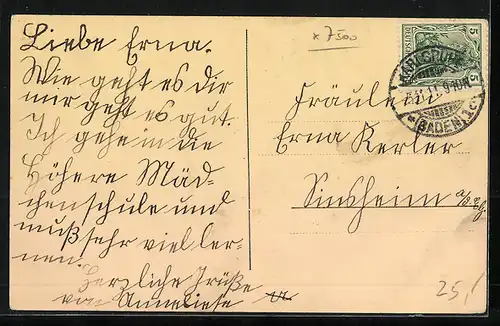 Liebe Erna.
Wie geht es dir
mir geht es gut.
Ich gehe in die
Höhere Mäd-
chenschule und
muß sehr viel ler-
nen.
Herzliche Grüße
von Anneliese
x 7500
5 5
KARLSRUHE
11. 9-10
(BADEN) 1
Fräulein
Erna Kerler
Sinsheim
25,/